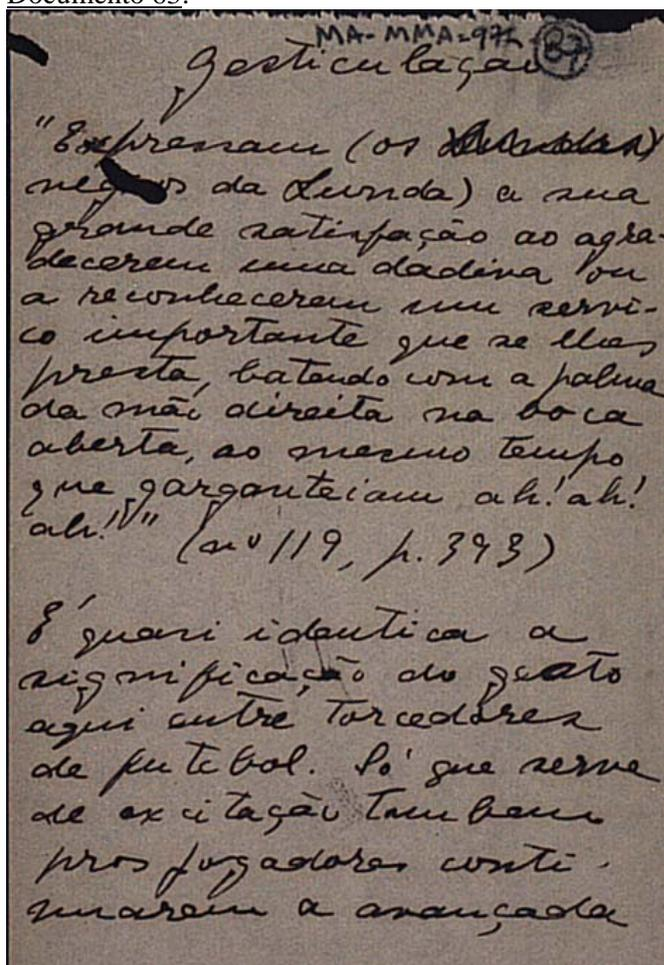 Documento 83:
MA-MMA-972 87
Gesticulação
"Expressam (os
negros da Lunda) a sua
grande satisfação ao agra-
decerem uma dadiva ou
a reconhecerem um servi-
ço importante que se lhes
presta, batendo com a palma
da mão direita na boca
aberta, ao mesmo tempo
que garganteiam ah! ah!
ah!" (nº 119, p. 393)
É quasi identica a
significação do gesto
aqui entre torcedores
de futebol. Só que serve
de excitação tambem
pros jogadores conti-
nuarem a avançada